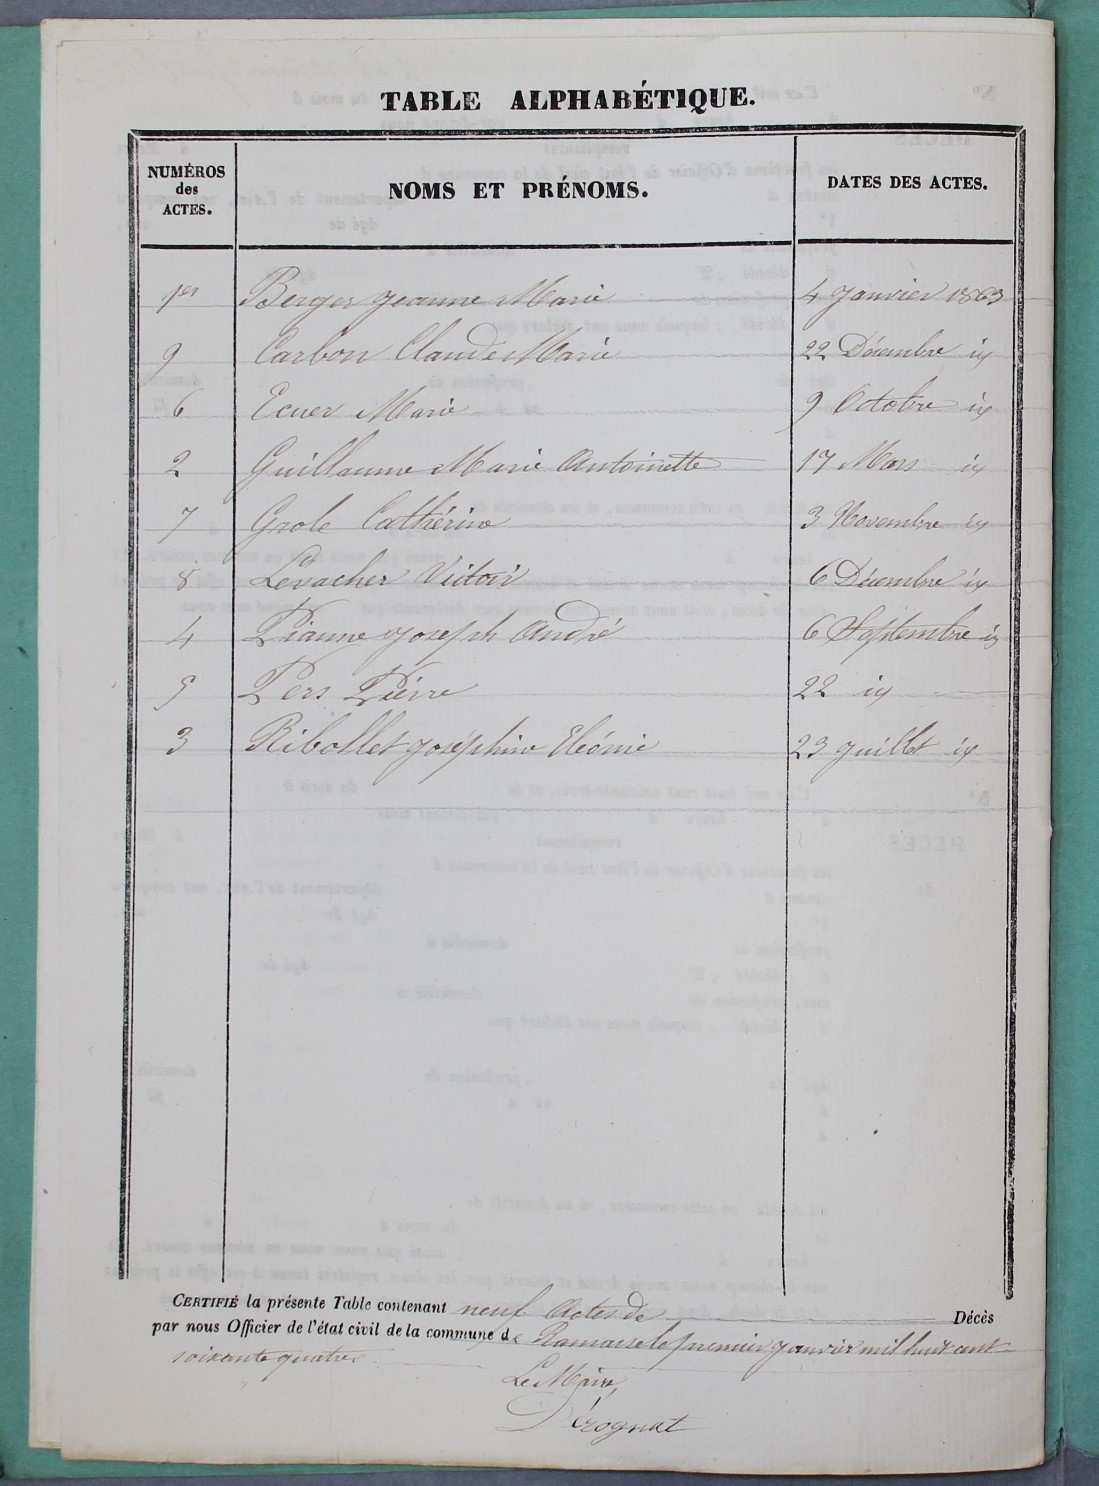 TABLE ALPHABÉTIQUE.
NUMÉROS des ACTES. NOMS ET PRÉNOMS. DATES DES ACTES.
1er Berger Jeanne Marie 4 Janvier 1863
9 Carbon Claude Marie 22 Décembre id
6 Ecuer Marie 9 Octobre id
2 Guillaume Marie Antoinette 17 Mars id
7 Grole Cathérine 3 Novembre id
8 Levacher Victoir 6 Décembre id
4 Pianne Joseph André 6 Septembre id
5 Pers Pierre 22 id
3 Ribollet Joséphine Eléonie 23 Juillet id
CERTIFIÉ la présente Table contenant neuf Actes de Décès
par nous Officier de l'état civil de la commune de Ramasse le premier Janvier mil huit cent
soixante quatre
Le Maire,